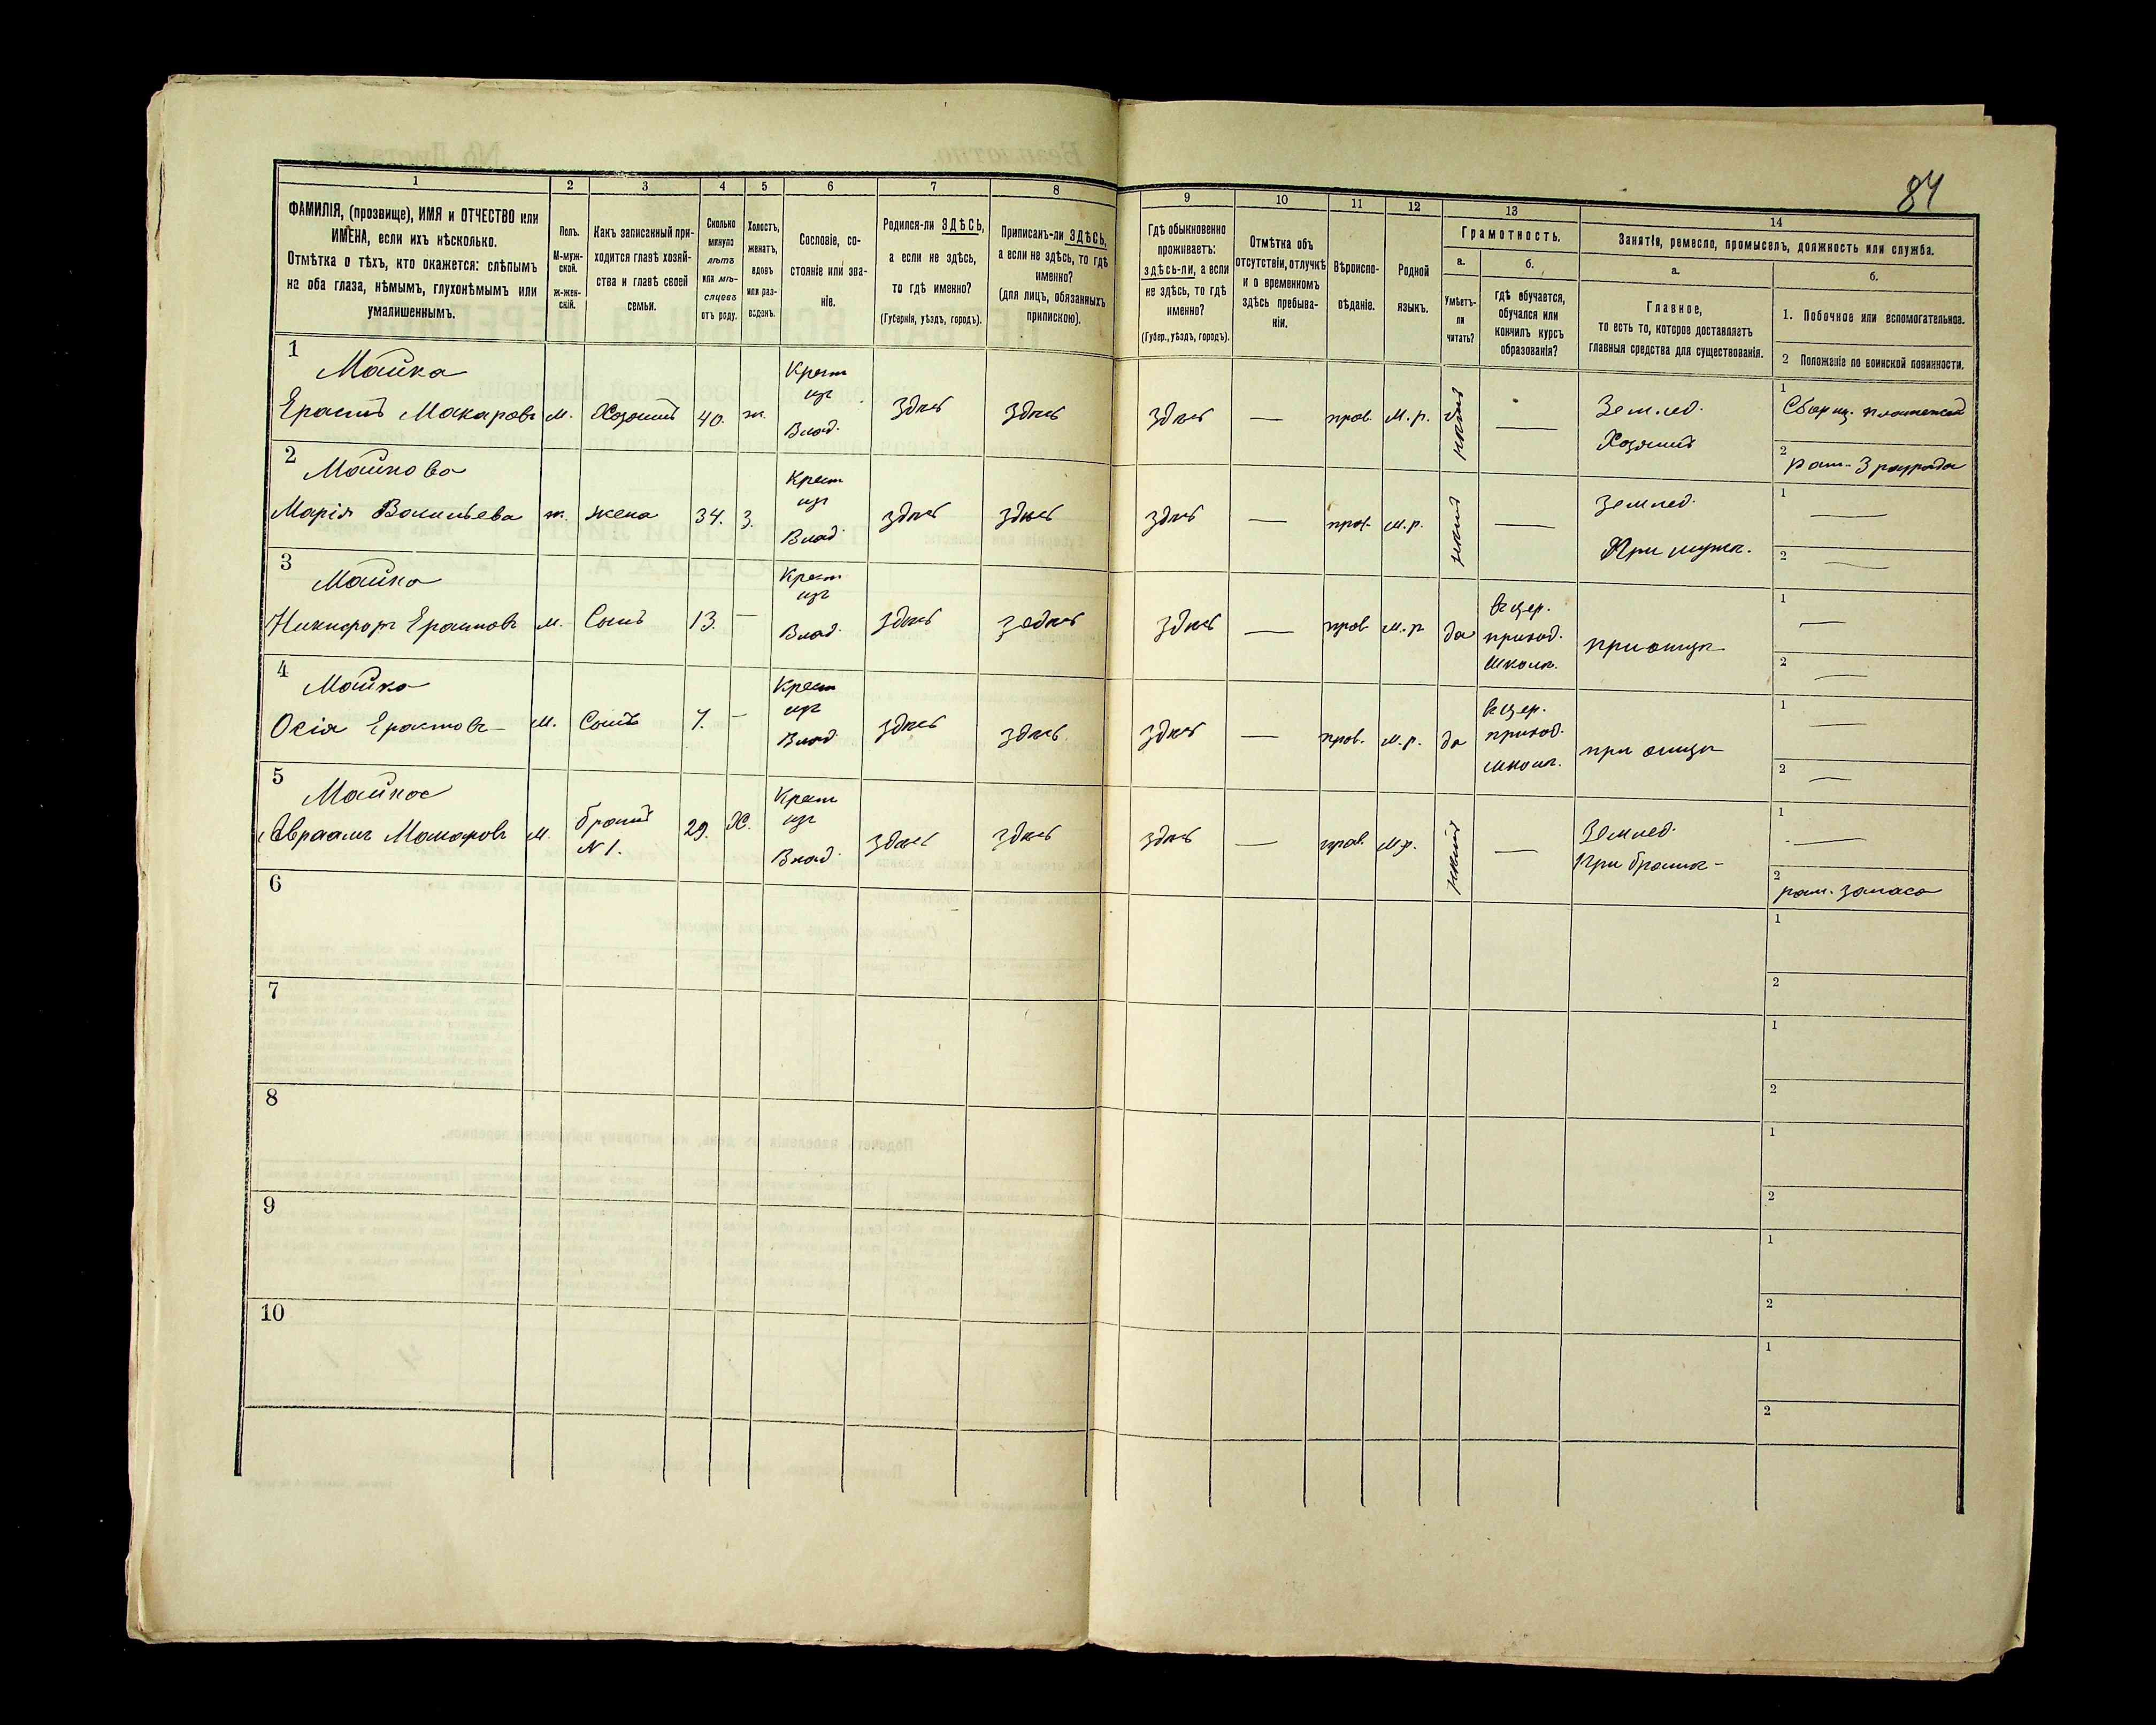 84
1
2
3
4
5
6
7
8
9
10
11
12
13
14
ФАМИЛІЯ, (прозвище), ИМЯ и ОТЧЕСТВО или
ИМЕНА, если ихъ нѣсколько.
Отмѣтка о тѣхъ, кто окажется: слѣпымъ
на оба глаза, нѣмымъ, глухонѣмымъ или
умалишеннымъ.
Полъ.
М-муж-
ской.
ж-жен-
скій.
Какъ записанный при-
ходится главѣ хозяй-
ства и главѣ своей
семьи.
Сколько
минуло
лѣтъ
или мѣ-
сяцевъ
отъ роду.
Холостъ,
женатъ,
вдовъ
или раз-
веденъ.
Сословіе, со-
стояніе или зва-
ніе.
Родился-ли ЗДѢСЬ,
а если не здѣсь,
то гдѣ именно?
(Губернія, уѣздъ, городъ).
Приписанъ-ли ЗДѢСЬ,
а если не здѣсь, то гдѣ
именно?
(для лицъ, обязанныхъ
припискою).
Гдѣ обыкновенно
проживаетъ:
здѣсь-ли, а если
не здѣсь, то гдѣ
именно?
(Губер., уѣздъ, городъ).
Отмѣтка объ
отсутствіи, отлучкѣ
и о временномъ
здѣсь пребыва-
ніи.
Вѣроиспо-
вѣданіе.
Родной
языкъ.
Грамотность.
а.
Умѣетъ-
ли
читать?
б.
гдѣ обучается,
обучался или
кончилъ курсъ
образованія?
Занятіе, ремесло, промыселъ, должность или служба.
а.
Главное,
то есть то, которое доставляетъ
главныя средства для существованія.
б.
1. Побочное или вспомогательное.
2 Положеніе по воинской повинности.
1
Майка
Ерастъ Макаровъ
м.
Хозяинъ
40.
ж.
Крест
изъ
Влад.
здѣсь
здѣсь
здѣсь
—
прав.
М. р.
—
Землед.
Хозяинъ
1
2
рат. 3 разряда
2
Майкова
Марія Васильева
ж.
жена
34.
З.
Крест
изъ
Влад.
здѣсь
здѣсь
здѣсь
—
прав.
м. р.
—
Землед.
При мужѣ.
1
—
2
—
3
Майка
Никифоръ Ерастовъ
м.
Сынъ
13.
—
Крест
изъ
Влад.
здѣсь
здѣсь
—
прав.
м. р
да
въ цер.
приход.
школѣ.
при отцѣ
1
—
2
—
4
Майка
Осія Ерастовъ
м.
Сынъ
7.
—
Крест
изъ
Влад
здѣсь
здѣсь.
здѣсь
—
прав.
м. р.
да
въ цер.
приход.
школѣ.
при отцѣ
1
—
2
—
5
Майка
Авраамъ Макаровъ
м.
братъ
N 1.
29.
Х.
Крест
изъ
Влад.
здѣсь
здѣсь
здѣсь
—
прав.
м. р.
—
Землед.
При братѣ
1
—
2
рат. запаса
6
1
2
7
1
2
8
1
2
9
1
2
10
1
2